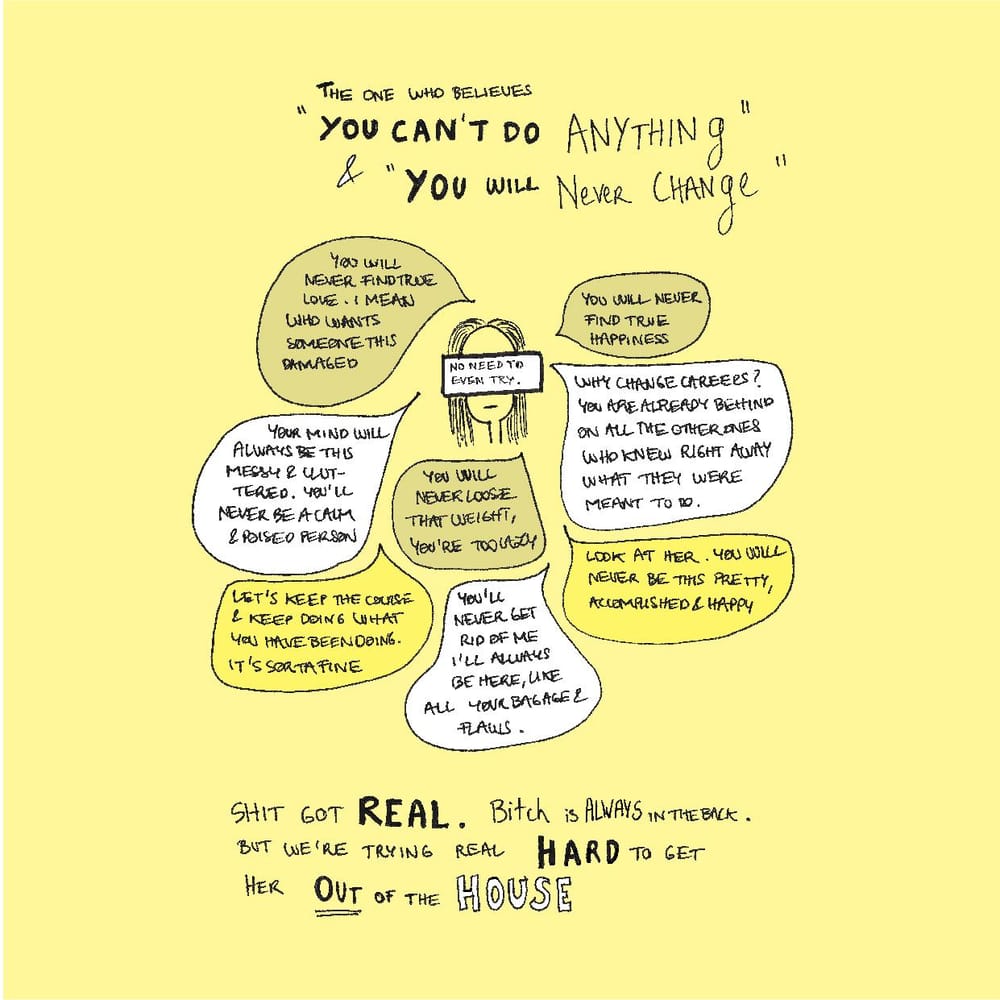 THE ONE WHO BELIEVES
"YOU CAN'T DO ANYTHING"
& "YOU WILL NEVER CHANGE"
YOU WILL
NEVER FIND TRUE
LOVE. I MEAN
WHO WANTS
SOMEONE THIS
DAMAGED
YOU WILL NEVER
FIND TRUE
HAPPINESS
NO NEED TO
EVEN TRY.
WHY CHANGE CAREERS?
YOU ARE ALREADY BEHIND
ON ALL THE OTHER ONES
WHO KNEW RIGHT AWAY
WHAT THEY WERE
MEANT TO DO.
YOUR MIND WILL
ALWAYS BE THIS
MESSY & CLUT-
TERED. YOU'LL
NEVER BE A CALM
& POISED PERSON
YOU WILL
NEVER LOOSE
THAT WEIGHT,
YOU'RE TOO LAZY
LOOK AT HER. YOU WILL
NEVER BE THIS PRETTY,
ACCOMPLISHED & HAPPY
LET'S KEEP THE COURSE
& KEEP DOING WHAT
YOU HAVE BEEN DOING.
IT'S SORTA FINE
YOU'LL
NEVER GET
RID OF ME
I'LL ALWAYS
BE HERE, LIKE
ALL YOUR BAGAGE &
FLAWS.
SHIT GOT REAL. Bitch is ALWAYS IN THE BACK.
BUT WE'RE TRYING REAL HARD TO GET
HER OUT OF THE HOUSE